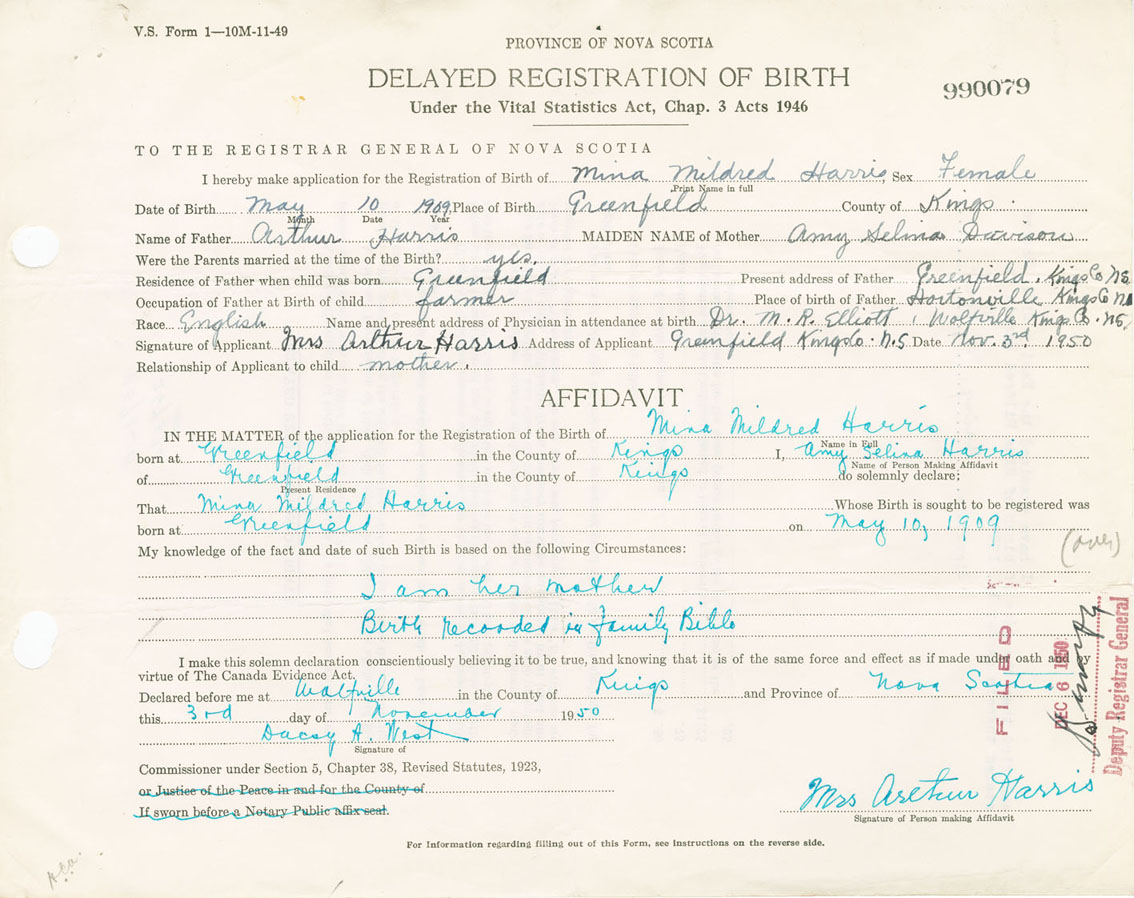 V.S. Form 1—10M-11-49
PROVINCE OF NOVA SCOTIA
DELAYED REGISTRATION OF BIRTH
990079
Under the Vital Statistics Act, Chap. 3 Acts 1946
TO THE REGISTRAR GENERAL OF NOVA SCOTIA
I hereby make application for the Registration of Birth of Mina Mildred Harris, Sex Female
Print Name in full
Date of Birth May 10 1909 Place of Birth Greenfield County of Kings
Month Date Year
Name of Father Arthur Harris MAIDEN NAME of Mother Amy Selina Davison
Were the Parents married at the time of the Birth? yes.
Residence of Father when child was born Greenfield Present address of Father Greenfield. Kings Co NS
Occupation of Father at Birth of child farmer Place of birth of Father Hortonville Kings Co
Race English Name and present address of Physician in attendance at birth Dr. M. R. Elliott, Wolfville Kings Co. NS,
Signature of Applicant Mrs Arthur Harris Address of Applicant Greenfield Kings Co. N.S Date Nov. 3rd 1950
Relationship of Applicant to child mother.
AFFIDAVIT
IN THE MATTER of the application for the Registration of the Birth of Mina Mildred Harris
Name in Full
born at Greenfield in the County of Kings I, Amy Selina Harris
Name of Person Making Affidavit
of Greenfield in the County of Kings do solemnly declare;
Present Residence
That Mina Mildred Harris Whose Birth is sought to be registered was
born at Greenfield on May 10, 1909
(over)
My knowledge of the fact and date of such Birth is based on the following Circumstances:
I am her mother
Birth recorded in Family Bible
I make this solemn declaration conscientiously believing it to be true, and knowing that it is of the same force and effect as if made under oath and by
virtue of The Canada Evidence Act.
Declared before me at Wolfville in the County of Kings and Province of Nova Scotia
this 3rd day of November 1950
FILED
DEC 6 1950
Deputy Registrar General
Dacey A. West
Signature of
Commissioner under Section 5, Chapter 38, Revised Statutes, 1923,
or Justice of the Peace in and for the County of
If sworn before a Notary Public affix seal.
Mrs Arthur Harris
Signature of Person making Affidavit
For Information regarding filling out of this Form, see instructions on the reverse side.